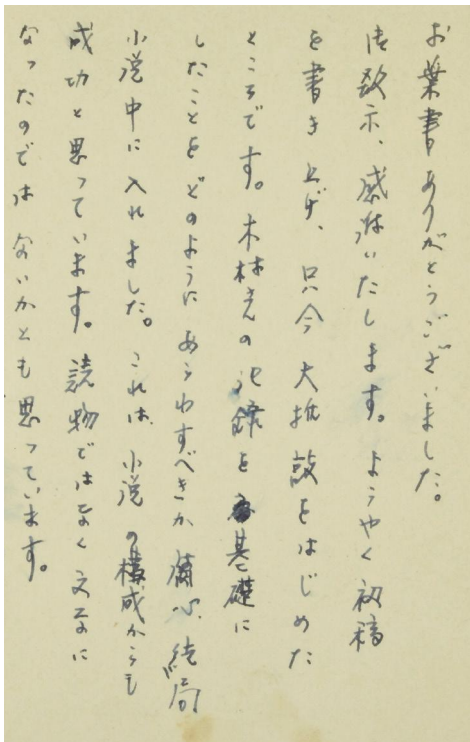 お葉書ありがとうございました。
御教示、感謝いたします。ようやく初稿
を書き上げ、只今大推敲をはじめた
ところです。木村さんの記録を基礎に
したことをどのようにあらわすべきか腐心、結局
小説中に入れました。これは、小説の構成からも
成功と思っています。読物ではなく文学に
なったのではないかとも思っています。